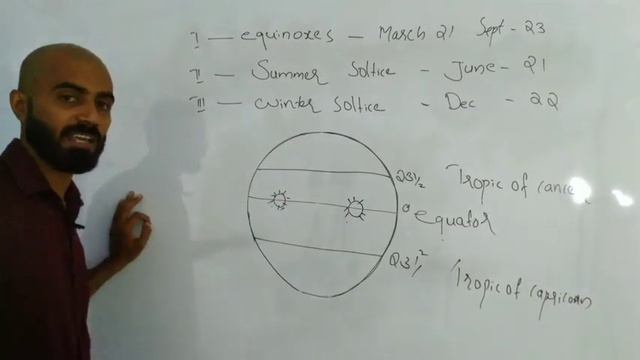 I — equinoxes — March 21 Sept - 23
II — Summer Soltice - June - 21
III — Winter Soltice - Dec - 22
23 1/2 Tropic of cancer
0 equator
23 1/2 Tropic of capricorn